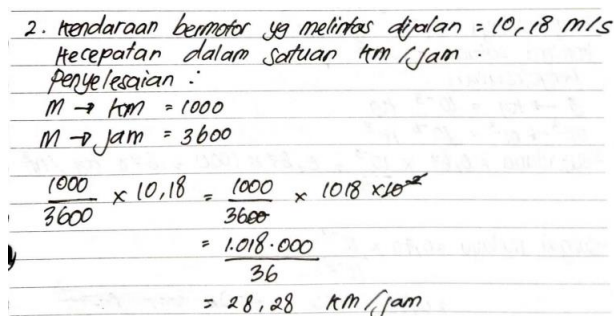 2. Kendaraan bermotor yg melintas dijalan = 10,18 m/s
Kecepatan dalam satuan km/jam.
Penyelesaian :
M → km = 1000
M → jam = 3600
1000/3600 × 10,18 = 1000/3600 × 1018 × 10⁻²
= 1.018.000/36
= 28,28 km/jam